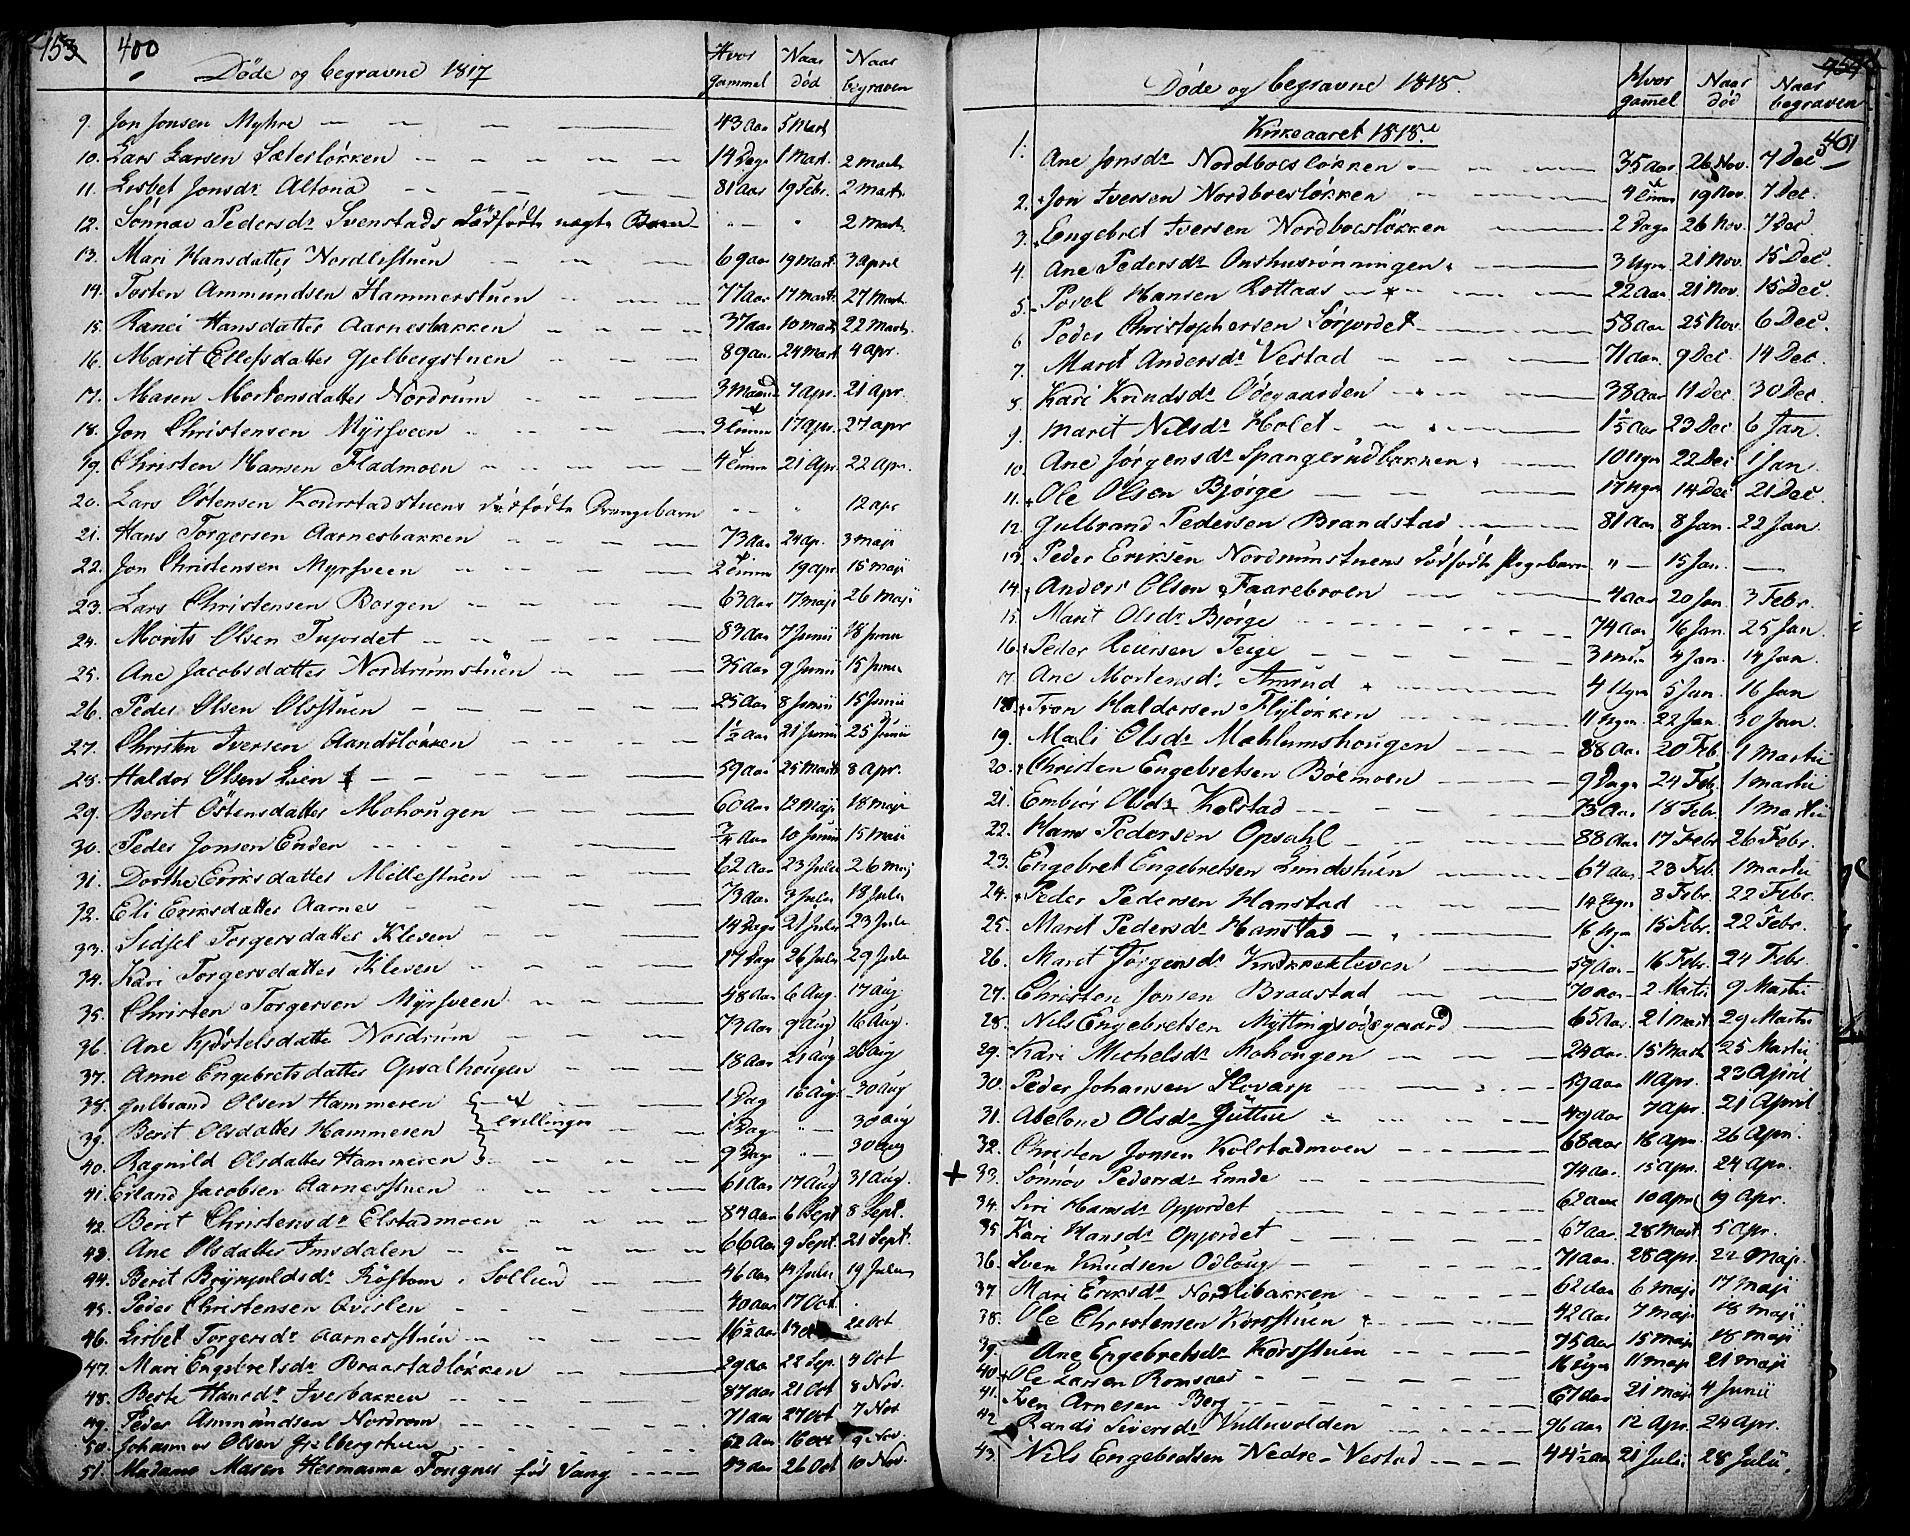 153 400
Døde og begravne 1817 Hvor gammel Naar død Naar begraven
9. Jon Jonsen Myhre 43 Aar 5 Mart
10. Lars Larsen Sæterløkken 14 Dage 1 Mart. 2 Mart.
11. Lisbet Jonsdr Altona 81 Aar 19 Febr. 2 Mart.
12. Sönnæ Pedersdr Svenstads dødfødte uægte Barn " — " 2 Mart.
13. Mari Hansdatter Nordlistuen 69 aar 19 Mart. 3 April
14. Torsten Ammundsen Hammerstuen 77 Aar 17 Mart. 27 Mart.
15. Ranei Hansdatter Aarnesbakken 37 aar 10 Mart. 22 Mart.
16. Marit Ellefsdatter Gjelbergstuen 89 aar 24 Mart 4 apr.
17. Maren Mortensdatter Nordrum 3 Maand 7 Apr. 21 Apr.
18. Jon Christensen Myrsveen 3 17 Apr. 27 apr
19. Christen Hansen Fladmoen 4 21 Apr. 22 Apr.
20. Lars Östensen Kolrstadstuens dødfødte Drengebarn 12 apr
21. Hans Torgersen Aarnesbakken 73 Aar 24 ap. 3 Maji
22. Jon Christensen Myrsveen 2 19 apr 15 Maji
23. Lars Christensen Borgen 63 Aar 17 Maji 26 Maji
24. Morits Olsen Tujordet 83 Aar 7 Junii 18 Junii
25. Ane Jacobsdatter Nordrumstuen 35 Aar 9 Junii 15 Junii
26. Peder Olsen Olsstuen 25 Aar 8 Junii 15 Junii
27. Christen Iversen Aandsløkken 1½ Aar 21 Junii 25 Junii
28. Haldor Olsen Lien 59 Aar 25 Mart 8 Apr.
29. Berit Östensdatter Mohougen 60 Aar 12 Maji 18 Maji
30. Peder Jonsen Enden ¾ Aar 10 Junii 15 Maji
31. Dorthe Eriksdatter Millestuen 62 Aar 23 Julii 26 Maj
32. Eli Eriksdatter Aarnes 73 Aar 3 Julii 18 Julii
33. Sidsel Torgersdatter Kleven 14 Dage 21 Julii 23 Julii
34. Kari Torgersdatter Kleven 17 Dage 26 Julii 29 Julii
35. Christen Torgersen Myrsveen 48 Aar 6 Aug. 17 Aug.
36. Ane Kjöstelsdatter Nordrum 73 Aar 9 Aug 16 Aug.
37. Anne Engebretsdatter Opsalhougen 18 Aar 21 Aug 26 Aug
38. Gulbrand Olsen Hammeren 1 Dag 16 Aug. 30 Aug
39. Berit Olsdatter Hammeren trillinger 1 Dag " — 30 Aug
40. Ragnild Olsdatter Hammeren 9 Dage " — 30 Aug
41. Erland Jacobsen Aarnesstuen 61 Aar 17 Aug 31 Aug.
42. Berit Christensdr Elstadmoen 84 Aar 6 Sept 8 Sept.
43. Ane Olsdatter Imsdalen 66 Aar 9 Sept. 21 Sept.
44. Berit Brynjuldsdr Röstom i Sollien 46 Aar 14 Julii 19 Julii
45. Peder Christensen Qvislen 40 Aar 17 Oct
46. Lisbet Torgersdr Aarnesstuen 16½ Aar 19 Oct 22 Oct
47. Mari Engebretsdr Braastadløkken 29 Aar 22 Sep. 4 Oct
48. Berte Hansdr Iverbakken 87 Aar 21 Oct 8 Nov.
49. Peder Ammundsen Nordrom 71 Aar 27 Oct 7 Nov
50. Johannes Olsen Gjelbergstuen 62 Aar 16 Oct 9 Nov.
51. Madame Maren Hermanna Forgnes fød Vang 43 Aar 26 Oct 10 Nov.
Døde og begravne 1818. Hvor gamel Naar død Naar begraven
401
Kirkeaaret 1818.
1. Ane Jonsdr Nordboesløkken 35 Aar 26 Nov. 7 Dec
2. Jon Iversen Nordboesløkken 4 19 Nov. 7 Dec.
3. Engebret Iversen Nordboesløkken 2 Dage 26 Nov. 7 Dec
4. Ane Pedersdr Onshusrønningen 3 Ugr 21 Nov. 15 Dec.
5. Povel Hansen Rottaas 22 Aar 21 Nov. 15 Dec.
6 Peder Christophersen Sørjordet 58 Aar 25 Nov. 6 Dec.
7. Marit Andersdr Vestad 71 Aar 9 Dec 14 Dec.
8. Kari Knudsdr Odegaarden 38 Aar 11 Dec 30 Dec.
9. Marit Nilsdr Holet 23 Dec 6 Jan.
10. Ane Jørgensdr Spangerudbakken 10 Ugr 22 Dec 1 Jan
11. Ole Olsen Bjørge 17 Ugr 14 Dec 21 Dec.
12. Gulbrand Pedersen Brandstad 81 Aar 8 Jan. 22 Jan
13 Peder Eriksen Nordrumstuens dødfødte Pigebarn " — 15 Jan. —
14. Anders Olsen Faarebroen 4 Aar 20 Jan 3 Febr.
15. Marit Olsdr Bjørge 74 Aar 16 Jan. 25 Jan
16. Peder Teige 3 4 Jan. 14 Jan.
17. Ane Mortensdr Amrud 4 Ugr 5 Jan. 16 Jan
18. Tron Haldorsen Flyløkken 11 Ugr. 22 Jan. 30 Jan.
19. Mali Olsdr Mahlumshougen 88 Aar 20 Feb. 1 Martii
20. Christen Engebretsen Böemoen 9 Dage 24 Feb. 1 Martii
21. Embiör Olsdr Kolstad 73 Aar 18 Febr. 1 Martii
22. Hans Pedersen Opsahl 88 Aar 17 Febr 26 Febr.
23. Engebret Engebretsen Lundstuen 64 Aar 23 Feb. 1 Martii
24. Peder Pedersen Hanstad 14 Ugr 8 Febr. 22 Febr.
25. Marit Pedersdr Hanstad 16 Ugr 15 Febr. 22 Febr.
26. Marit Jørgensdr 59 Aar 16 Febr. 24 Febr.
27. Christen Jonsen Braastad 70 Aar 2 Martii 9 Martii
28. Nils Engebretsen Myttingsødegaard 65 Aar 21 Mart. 29 Martii
29. Kari Michelsdr Mohougen 24 Aar 15 Mart 25 Martii
30. Peder Johansen Slovarp 59 Aar 11 Apr. 23 April
31. Abelone Olsdr Jüttue 49 Aar 7 Apr. 21 April
32. Christen Jonsen Kolstadmoen 68 Aar 16 Apr. 26 Apr.
33. Sønnöv Pedersdr Lunde 74 Aar 15 Apr. 24 Apr.
34. Siri Hansdr Opjordet 62 Aar 10 Apr 19 Apr.
35. Kari Hansdr Opjordet 67 Aar 28 Mart 5 Apr.
36. Sven Knudsen Odloug 71 Aar 28 Apr. 22 Maji
37. Mari Eriksdr Nordlibakken 62 Aar 6 Maji 17 Maji
38. Ole Christensen Korsstuen 42 Aar 7 Maji 18 Maji
39. Ane Engebretsdr Korsstuen 75 Aar 15 Maji 18 Maji
40. Ole Larsen Romsaas 16 Ugr 11 Maji 21 Maji
41. Sven Arnesen Berg 67 Aar 21 Maji 4 Junii
42 Randi Siversdr Vulluvolden 96 Aar 12 Apr. 24 Apr.
43. Nils Engebretsen Nedre-Vestad 44½ Aar 21 Julii 28 Julii.